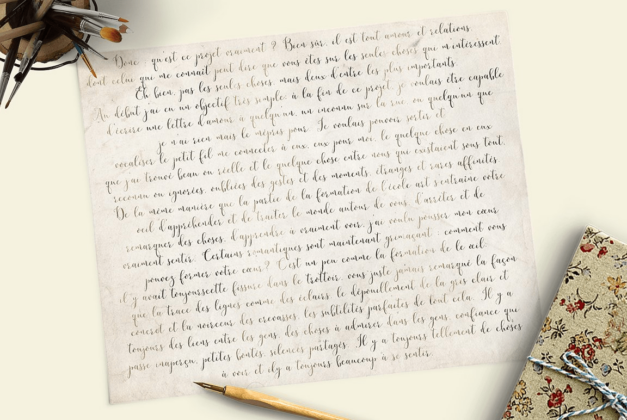 Donc, qu'est ce projet vraiment ? Bien sûr, il est tout amour et relations,
dont celui qui me connaît peut dire que vous êtes sur les seules choses qui m'intéressent.
Eh bien, pas les seules choses, mais deux d'entre les plus importants.
Au début j'ai eu un objectif très simple à la fin de ce projet, je voulais être capable
d'écrire une lettre d'amour à quelqu'un, un inconnu sur la rue ou quelqu'un que
je n'ai rien mais le mépris pour. Je voulais pouvoir sortir et
vocaliser le petit fil me connecter à eux, eux pour moi, le quelque chose en eux
que j'ai trouvé beau ou réelle et le quelque chose entre nous qui existaient sous tout,
reconnu ou ignorées, oubliées des gestes et des moments, étranges et rares affinités.
De la même manière que la partie de la formation de l'école art s'entraîne votre
œil d'appréhender et de traiter le monde autour de vous, d'arrêter et de
remarques des choses, d'apprendre à vraiment voir, j'ai voulu pousser mon cœur
vraiment sentir. Certains romantiques sont maintenant grimaçant : comment vous
pouvez former votre cœur? C'est un peu comme la formation de le œil:
il y avait toujourscette fissure dans le trottoir, vous juste jamais remarqué la façon
que la trace des lignes comme des éclairs, le dépouillement de la gris clair et
concret et la noirceur des crevasses, les subtilités parfaites de tout cela. Il y a
toujours des liens entre les gens, des choses à admirer dans les gens, confiance que
passe inaperçu, petites bontés, silences partagés. Il y a toujours tellement de choses
à voir et il y a toujours beaucoup à se sentir.